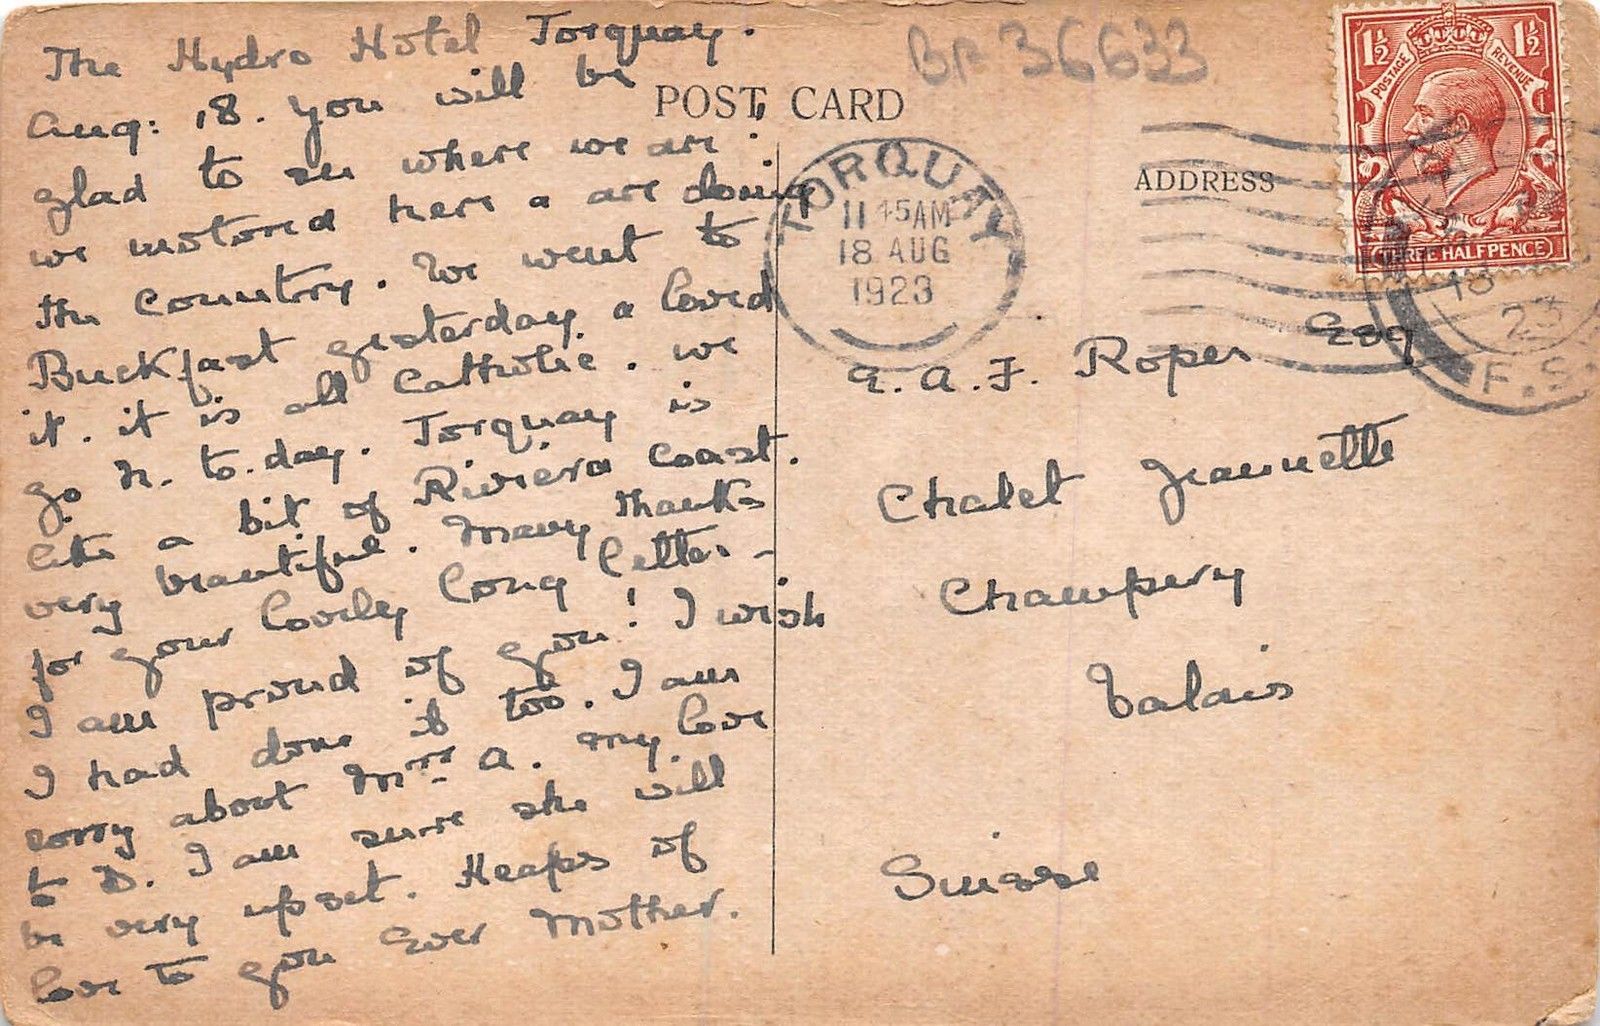 The Hydro Hotel Torquay.
Aug: 18. You will be
glad to see where we are!
we motored here & are doing
the Country. We went to
Buckfast yesterday & loved
it. it is all Catholic. we
go h. to-day. Torquay is
like a bit of Riviera Coast.
very beautiful. Many thanks
for your lovely long letter -
I am proud of you! I wish
I had done it too. I am
sorry about Mrs A. My love
to D. I am sure she will
be very upset. Heaps of
love to you Ever Mother.
BP 36633
POST CARD
ADDRESS
TORQUAY
11 45AM
18 AUG
1923
1½ 1½
POSTAGE REVENUE
THREE HALFPENCE
18
23
F.S.
E. A. F. Roper Esq
Chalet Jeannette
Champery
Valais
Suisse